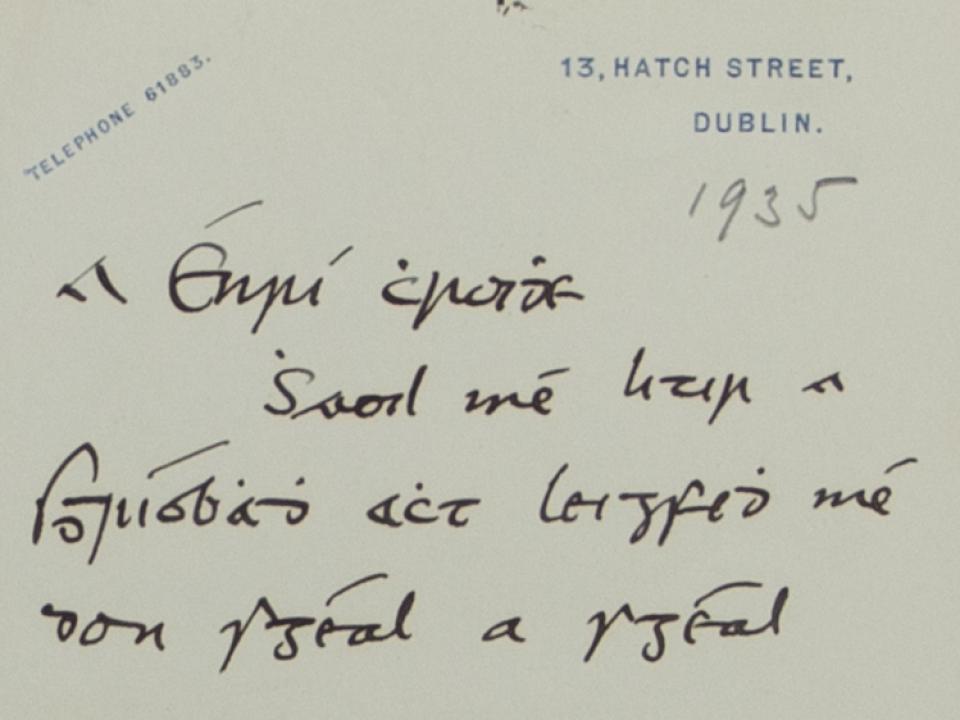 TELEPHONE 61883.
13, HATCH STREET,
DUBLIN.
1935
A Énrí ċroiḋe
Ṡaoil mé litir a
sgríoḃaḋ aċt leigfeḋ mé
don sgéal a sgéal